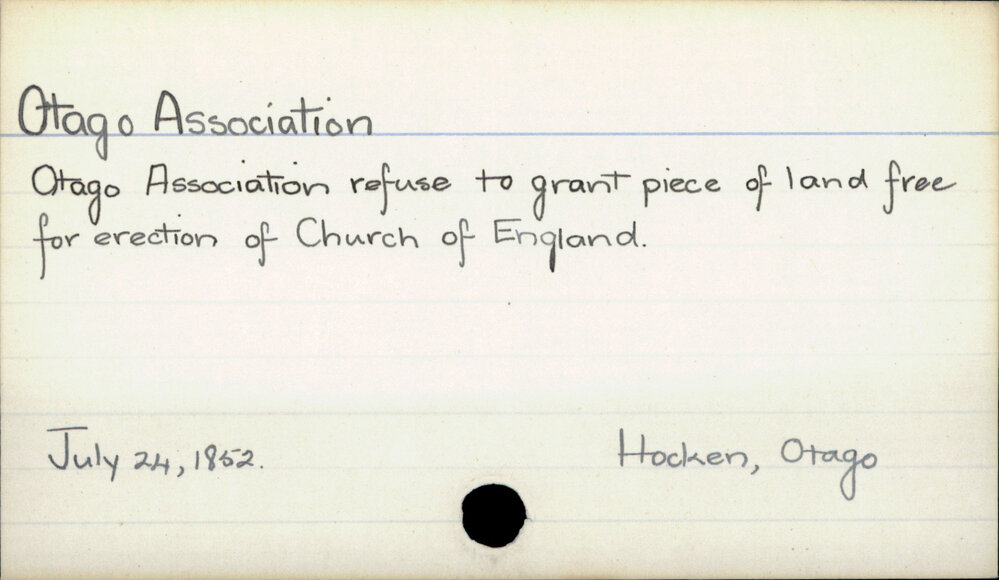 Otago Association
Otago Association refuse to grant piece of land free
for erection of Church of England.
July 24, 1852.
Hocken, Otago